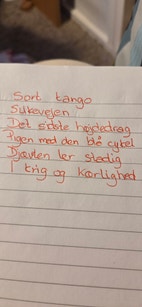 Sort tango
Sukavejen
Det sidste højdedrag
Pigen med den blå cykel
Djævlen ler stadig
I krig og kærlighed